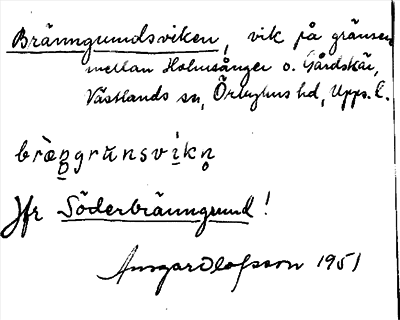 Bränngrundsviken, vik på gränsen
mellan Holmsånger o. Gårdskär,
Västlands sn, Örbyhus hd, Upps. l.
brὰn̥grɯnsvikn̥
Jfr Söderbränngrund!
Ansgar Olofsson 1951